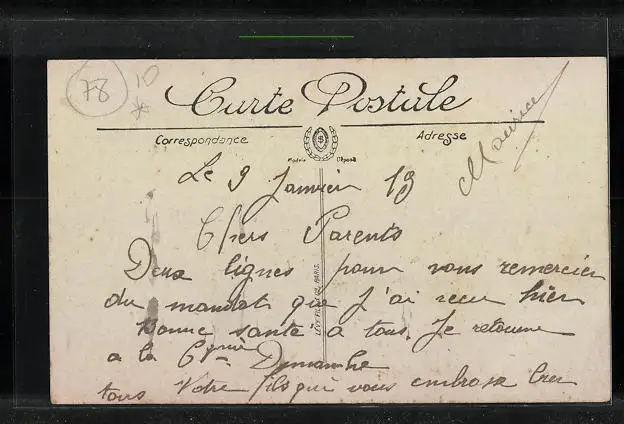 78
10
Carte Postale
Correspondance
Adresse
Modèle Déposé
Maurice
Le 9 Janvier 19
Chers Parents
Deux lignes pour vous remercier
du mandat que j'ai recu hier
Bonne santé a tous. Je retourne
a la Cie Dimanche
tous Votre fils qui vous embrasse bien
LÉVY FILS & Cie PARIS